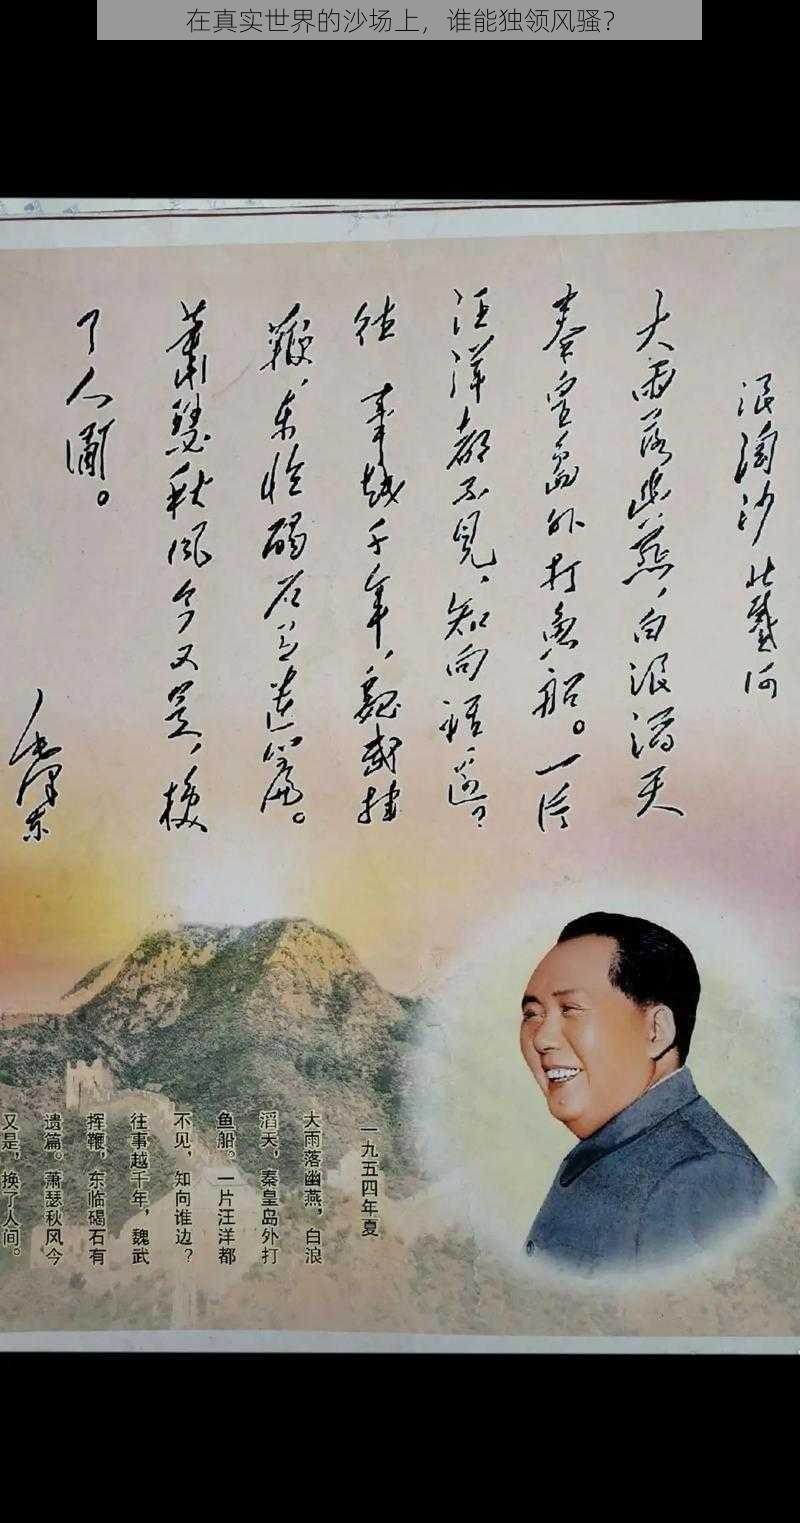 在真实世界的沙场上，谁能独领风骚？
浪淘沙 北戴河
大雨落幽燕，白浪滔天
秦皇島外打魚船。一片
汪洋都不見，知向誰邊？
往 事越千年，魏武揮
鞭，东临碣石有遺篇。
蕭瑟秋風今又是，换
了人间。
毛泽东
一九五四年夏
大雨落幽燕，白浪
滔天，秦皇岛外打
鱼船。一片汪洋都
不见，知向谁边？
往事越千年，魏武
挥鞭，东临碣石有
遗篇。萧瑟秋风今
又是，换了人间。